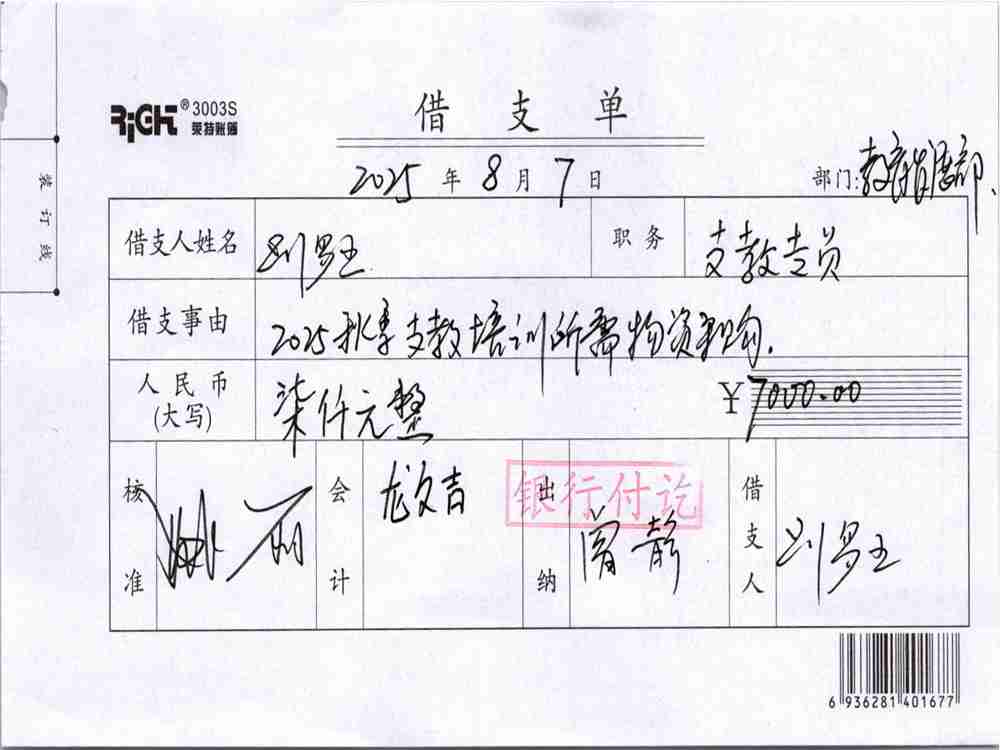 RiGHT® 3003S
莱特账簿
借支单
2025年8月7日
部门:教育发展部
装订线
借支人姓名 刘
职务 支教专员
借支事由 2025秋季支教培训所需物资采购.
人民币(大写) 柒仟元整 ¥7000.00
核准
会计 龙文吉
出纳 静
银行付讫
借支人 刘
6 936281 401677